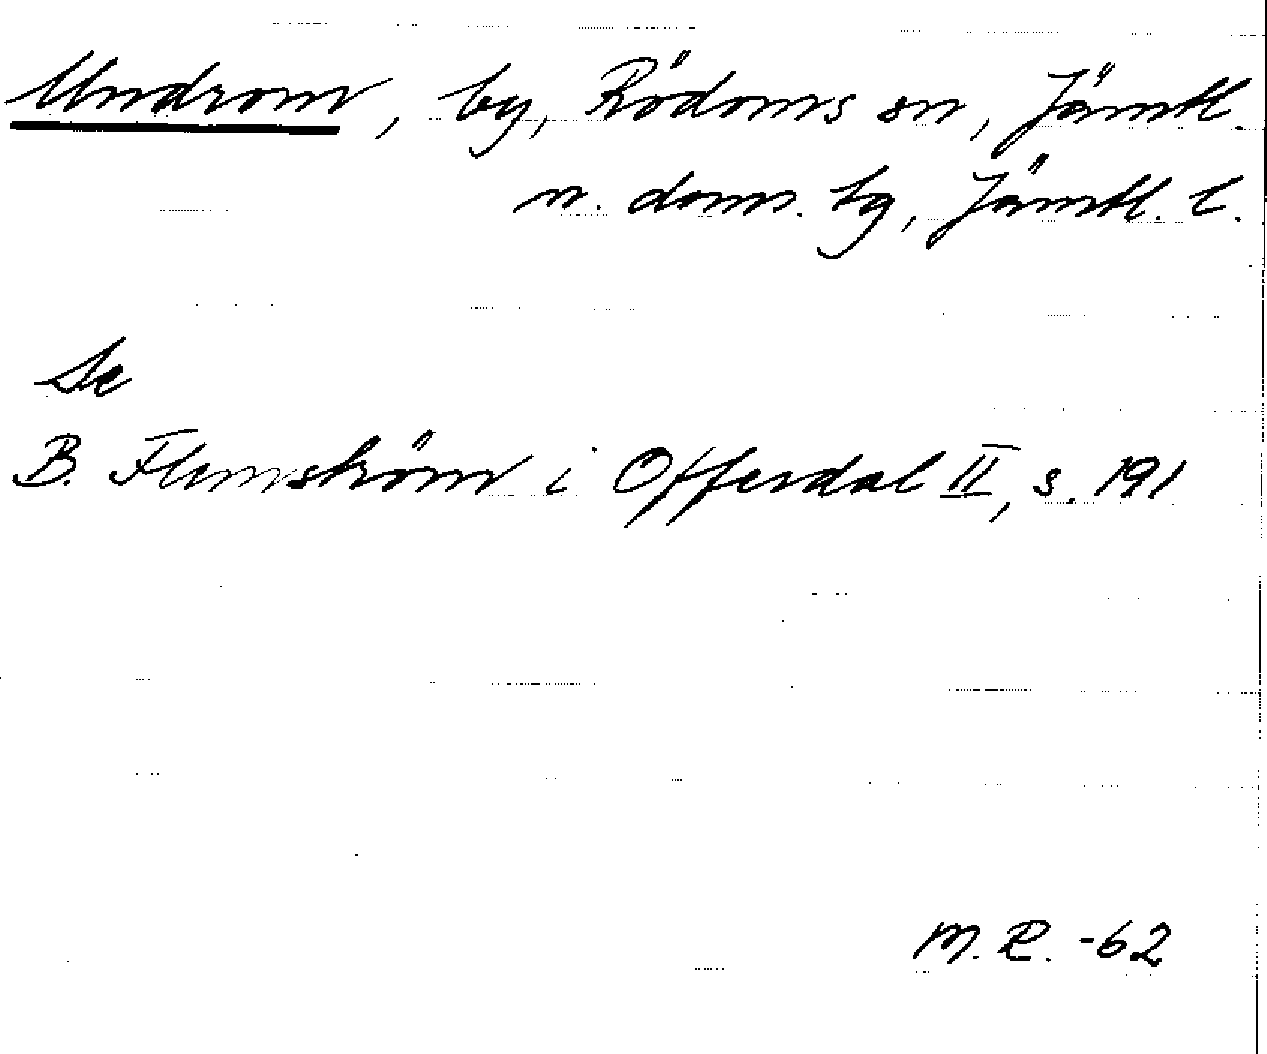 Undrom, by, Rödöns sn, Jämtl.
n. doms. hg, Jämtl. l.
Se
B. Flemström i Offerdal II, s. 191
M.R. -62